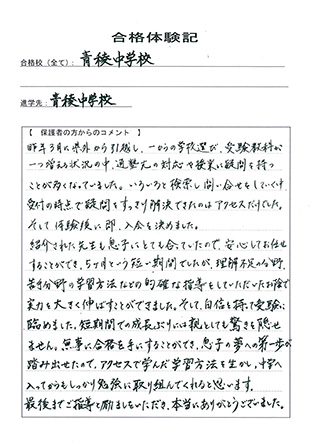 合格体験記
合格校（全て）: 青稜中学校
進学先: 青稜中学校
【 保護者の方からのコメント 】
昨年3月に県外から引越し、一からの学校選び、受験教科が
一つ増える状況の中、通塾先の対応や授業に疑問を持つ
ことが多くなっていました。いろいろと検索し問い合せをしていく中、
受付の時点で疑問をすっきり解決できたのはアクセスだけでした。
そして体験後に即、入会を決めました。
紹介された先生も息子にとても合っていたので、安心してお任せ
することができ、5ヶ月という短い期間でしたが、理解不足の分野、
苦手分野の学習方法などの的確な指導をしていただいたお陰で
実力を大きく伸ばすことができました。そして、自信を持って受験に
臨めました。短期間での成長ぶりには親としても驚きを隠せ
ません。無事に合格を手にすることができ、息子の夢への第一歩が
踏み出せたので、アクセスで学んだ学習方法を生かし、中学へ
入ってからもしっかり勉強に取り組んでくれると思います。
最後までご指導と励ましをいただき、本当にありがとうございました。